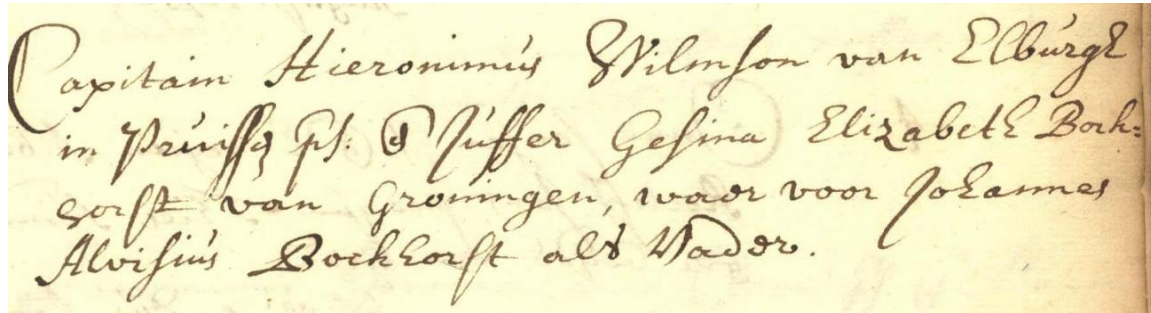 Capitain Hieronimus Wilmson van Elburgh
in Pruissen ps: & Juffer Gesina Elizabeth Boch=
horst van Groningen, waar voor Johannes
Aloisius Bockhorst als Vader.